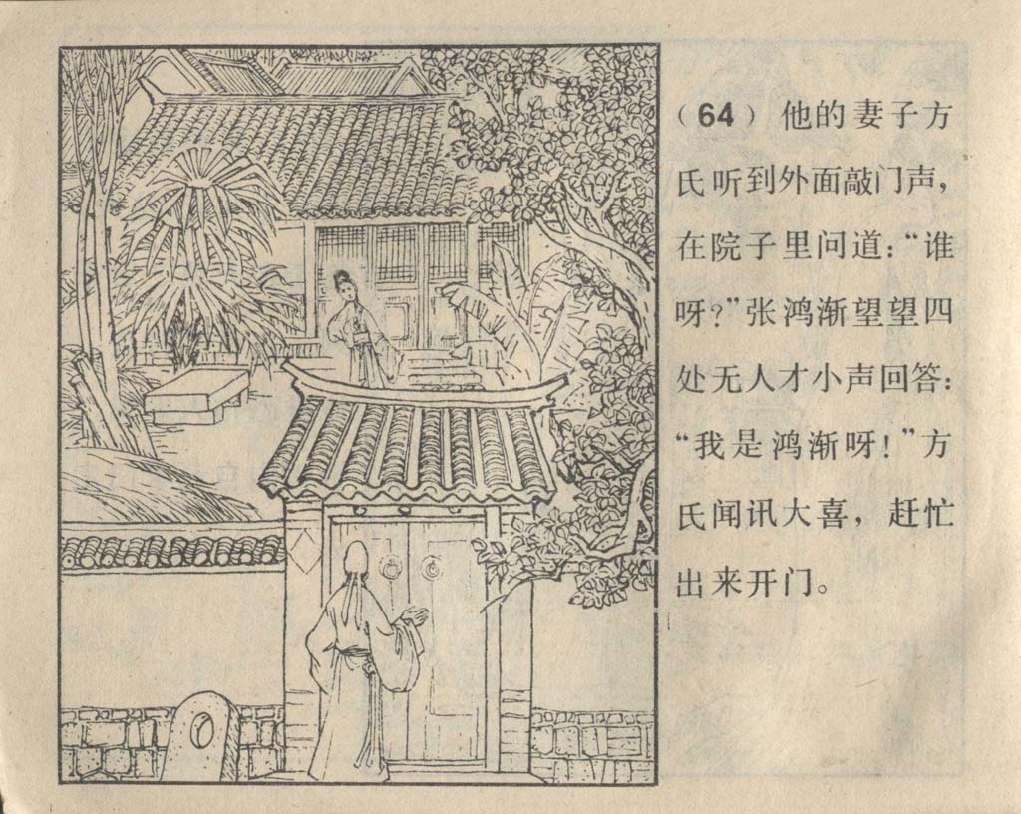 （64）他的妻子方
氏听到外面敲门声，
在院子里问道：“谁
呀？”张鸿渐望望四
处无人才小声回答：
“我是鸿渐呀！”方
氏闻讯大喜，赶忙
出来开门。